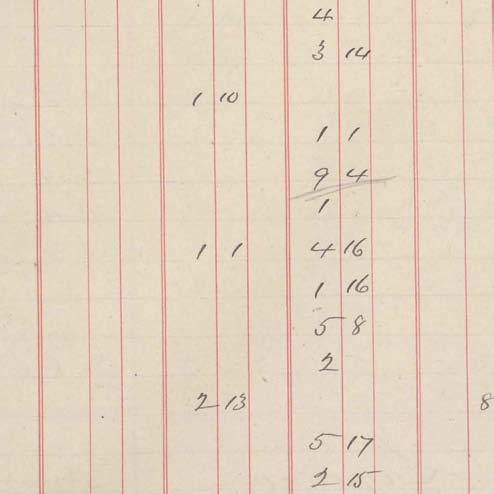 4
3 14
1 10
1 1
9 4
1
1 1 4 16
1 16
5 8
2
2 13 8
5 17
2 15